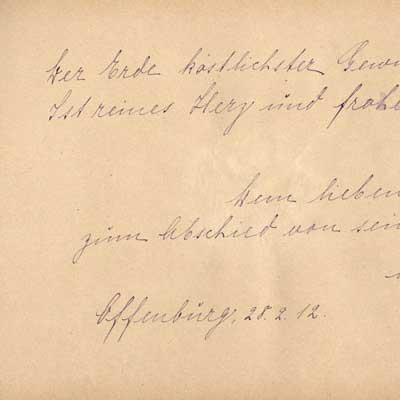 Der Erde köstlichster Gewi
Ist reines Herz und frohe
Dem lieben
zum Abschied von sein
Offenburg, 28.2.12.